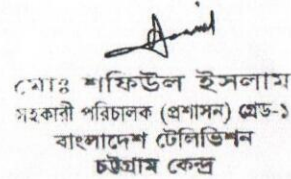 মোঃ শফিউল ইসলাম
সহকারী পরিচালক (প্রশাসন) গ্রেড-১
বাংলাদেশ টেলিভিশন
চট্টগ্রাম কেন্দ্র